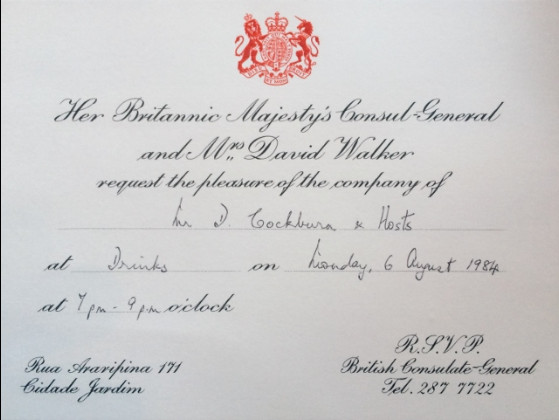 Her Britannic Majesty's Consul-General
and Mrs David Walker
request the pleasure of the company of
Mr D. Cockburn & Hosts
at Drinks on Monday, 6 August 1984
at 7pm - 9pm o'clock
R.S.V.P.
Rua Araripina 171 British Consulate-General
Cidade Jardim Tel. 287 7722